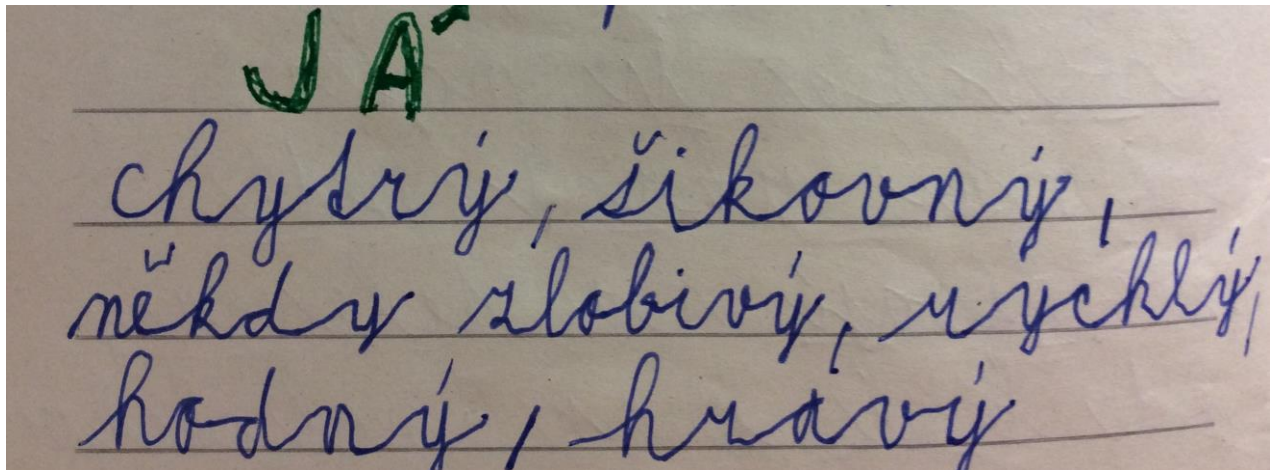 JÁ
chytrý, šikovný,
někdy zlobivý, rychlý,
hodný, hravý